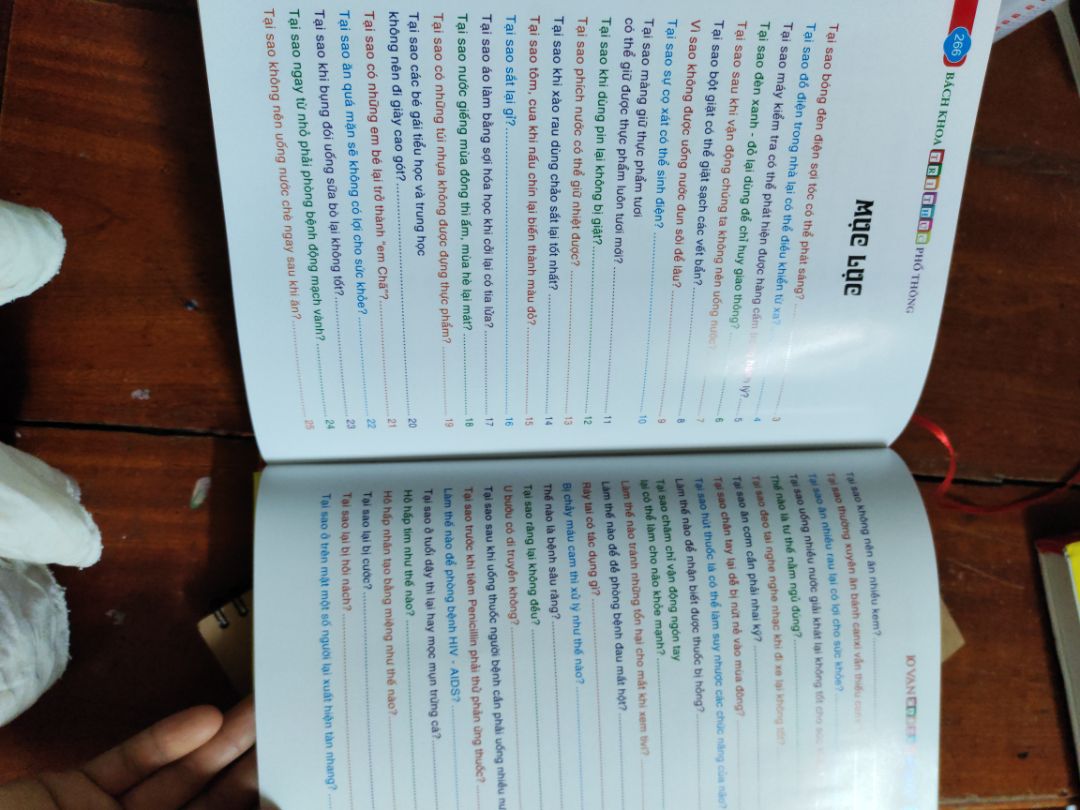 266
BÁCH KHOA TRI THỨC PHỔ THÔNG
MỤC LỤC
Tại sao bóng đèn điện sợi tóc có thể phát sáng? 3
Tại sao đồ điện trong nhà lại có thể điều khiển từ xa?
Tại sao máy kiểm tra có thể phát hiện được hàng cấm hành lý? 4
Tại sao đèn xanh - đỏ lại dùng để chỉ huy giao thông? 5
Tại sao sau khi vận động chúng ta không nên uống nước? 6
Tại sao bột giặt có thể giặt sạch các vết bẩn? 7
Vì sao không được uống nước đun sôi để lâu? 8
Tại sao sự cọ xát có thể sinh điện? 9
Tại sao màng giữ thực phẩm tươi
có thể giữ được thực phẩm luôn tươi mới? 10
Tại sao khi dùng pin lại không bị giật? 11
Tại sao phích nước có thể giữ nhiệt được? 12
Tại sao khi xào rau dùng chảo sắt lại tốt nhất? 13
Tại sao tôm, cua khi nấu chín lại biến thành màu đỏ? 14
Tại sao sắt lại gỉ? 15
Tại sao áo làm bằng sợi hóa học khi cởi lại có tia lửa? 16
Tại sao nước giếng mùa đông thì ấm, mùa hè lại mát? 17
Tại sao có những túi nhựa không được đựng thực phẩm? 18
Tại sao các bé gái tiểu học và trung học 19
không nên đi giày cao gót? 20
Tại sao có những em bé lại trở thành "em Chã"? 21
Tại sao ăn quá mặn sẽ không có lợi cho sức khỏe? 22
Tại sao khi bụng đói uống sữa bò lại không tốt? 23
Tại sao ngay từ nhỏ phải phòng bệnh động mạch vành? 24
Tại sao không nên uống nước chè ngay sau khi ăn? 25
10 VẠN
Tại sao không nên ăn nhiều kem?
Tại sao thường xuyên ăn bánh canxi vẫn thiếu
Tại sao ăn nhiều rau lại có lợi cho sức khỏe?
Tại sao uống nhiều nước giải khát lại không tốt cho
Thế nào là tư thế nằm ngủ đúng?
Tại sao đeo tai nghe nghe nhạc khi đi xe lại không tốt?
Tại sao ăn cơm cần phải nhai kỹ?
Tại sao chân tay lại dễ bị nứt nẻ vào mùa đông?
Tại sao hút thuốc lá có thể làm suy nhược các chức năng của não?
Làm thế nào để nhận biết được thuốc bị hỏng?
Tại sao chăm chỉ vận động ngón tay
lại có thể làm cho não khỏe mạnh?
Làm thế nào tránh những tổn hại cho mắt khi xem tivi?
Làm thế nào để đề phòng bệnh đau mắt hột?
Ráy tai có tác dụng gì?
Bị chảy máu cam thì xử lý như thế nào?
Thế nào là bệnh sâu răng?
Tại sao răng lại không đều?
U bướu có di truyền không?
Tại sao sau khi uống thuốc người bệnh cần phải uống nhiều
Tại sao trước khi tiêm Penicillin phải thử phản ứng thuốc?
Làm thế nào để phòng bệnh HIV - AIDS?
Tại sao ở tuổi dậy thì lại hay mọc mụn trứng cá?
Hô hấp tim như thế nào?
Hô hấp nhân tạo bằng miệng như thế nào?
Tại sao lại bị cước?
Tại sao lại bị hôi nách?
Tại sao ở trên mặt một số người lại xuất hiện tàn nhang?